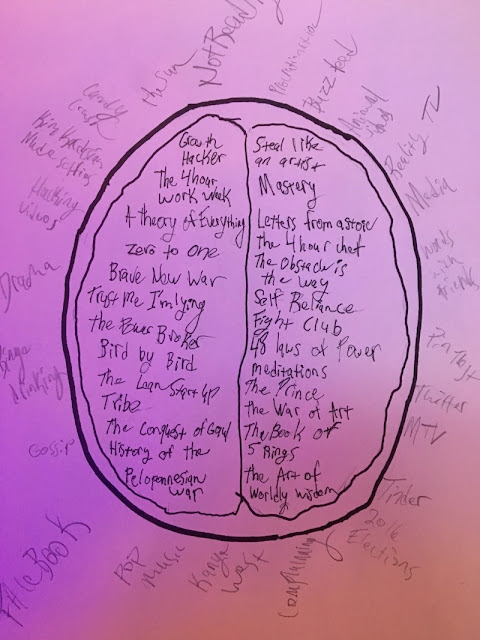 the sun
Procrastination
Buzz feed
Candy
Crush
TV
Reality
Media
Drama
words
with
friends
Growth
Hacker
The 4 hour
work week
A theory of Everything
zero to one
Brave New War
Trust Me I'm lying
the Power Broker
Bird by Bird
The Lean Start up
Tribe
The Conquest of Gaul
History of the
Peloponnesian
war
Steal like
an artist
Mastery
Letters from a stoic
the 4 hour chef
The Obstacle is
the way
Self Reliance
Fight Club
48 laws of Power
meditations
The Prince
the War of Art
The Book of
5 Rings
the Art of
worldly wisdom
Drinking
Twitter
MTV
Gossip
Tinder
2016
Elections
FAceBooK
Pop
music
Kanye
West
Complaining